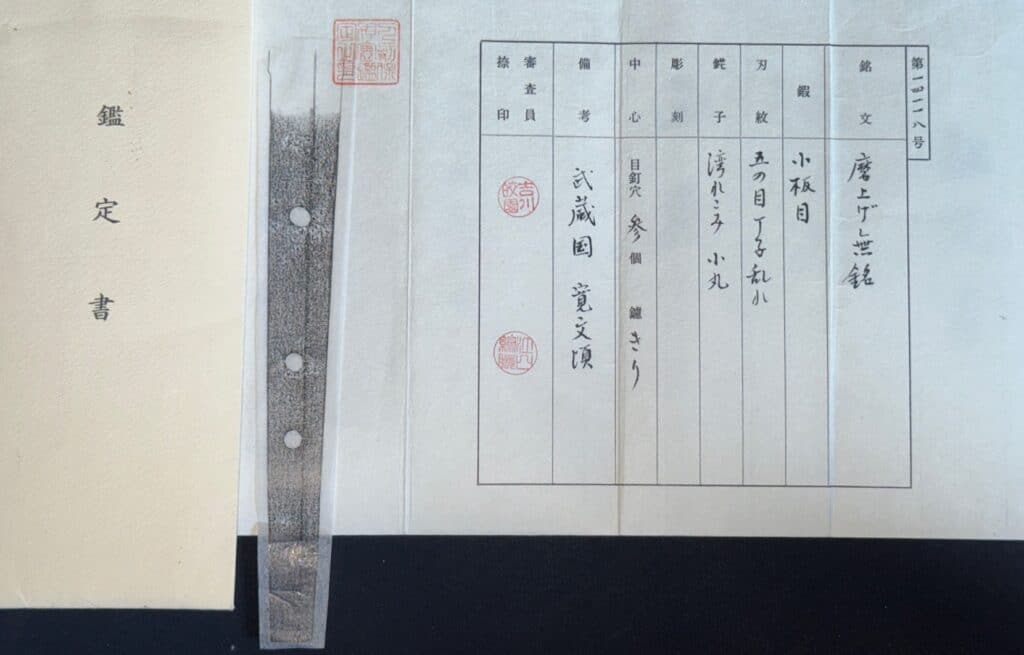 鑑定書
第一四一一八号
銘文 磨上げ無銘
鍜 小板目
刃紋 五の目丁子乱れ
鋩子 湾れこみ 小丸
彫刻
中心 目釘穴 参個 鑢 きり
備考 武蔵国 寛文頃
審査員
捺印
吉川皎園